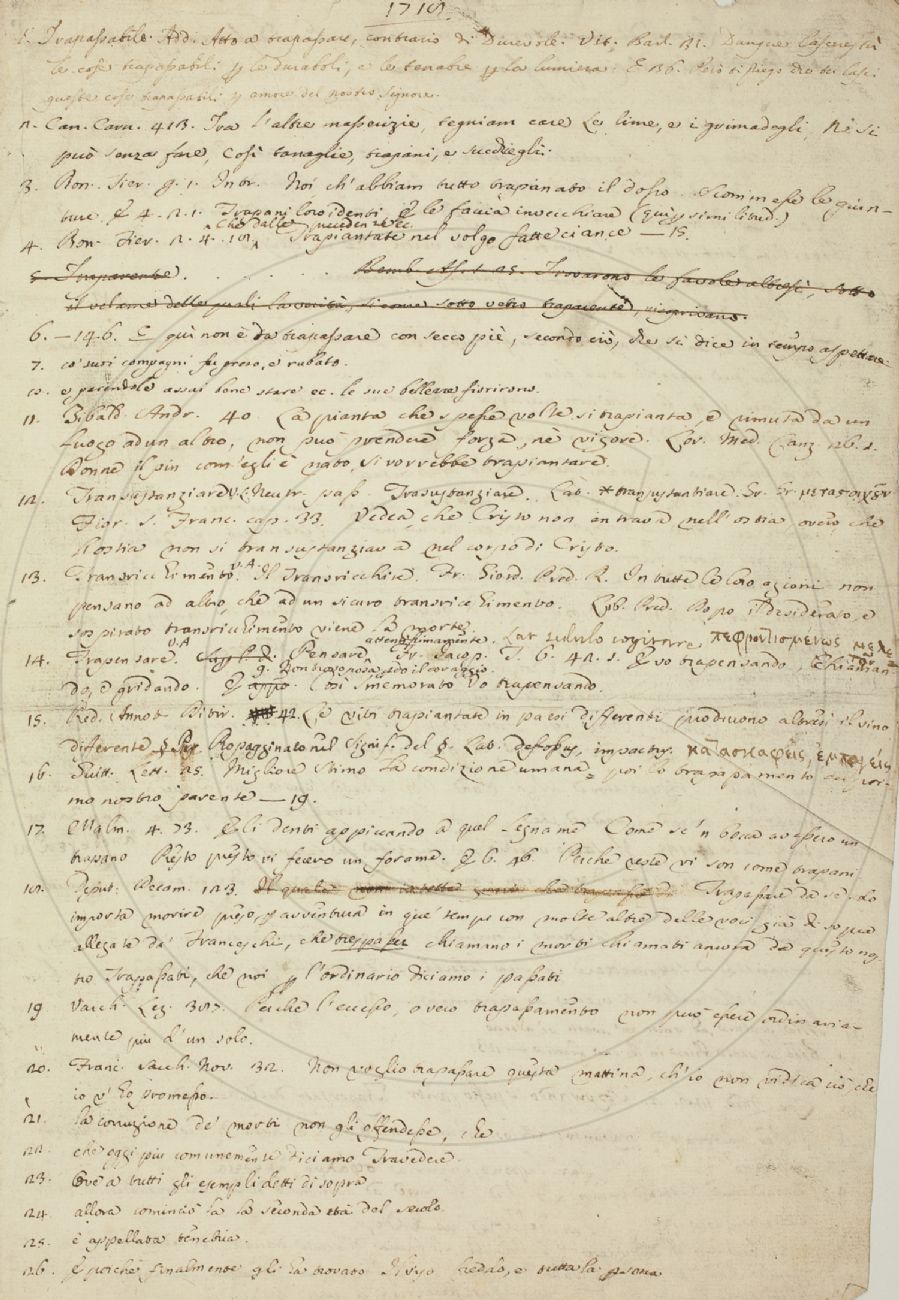 1719.
1. Trapassabile. Add. Atto a trapassare, contrario di Durevole. Vit. Barl. 31. Dunque lasceresti
le cose trapassabili per le durabili, e le tenebre per la lumiera. E 36. Però ti priego che tu lasci
queste cose trapassabili per amore del nostro Signore.
2. Can. Carn. 413. Tra l'altre masserizie, tegniam care Le lime, e i grimadegli, Nè si
può senza fare, Così tanaglie, trapani, e succhiegli.
3. Bon. Fier. g. 1. Intr. Noi ch'abbiam tutto trapanato il dosso. Scommesse le giun-
ture. E 4. 2. 1. Trapani loro i denti E le faccia invecchiare (qui per similitud.)
che dalle precedente ec.
4. Bon. Fier. 2. 4. 18. Trapiantate nel volgo fatte ciance — 15.
5. Trasparente. . . . . . . Bemb. Asol. 1. 25. Trovarono le favole altresì, sotto
il velame delle quali la verità, siccome sotto vetro trasparente, ricoprivano.
6. — 146. E qui non è da trapassare con secco piè, secondo ciò, che si dice in tempo aspettare
7. co' suoi compagni fu preso, e rubato.
10. e parendole assai bene stare ec. le sue bellezze fiorirono.
11. Tibald. Andr. 40. La pianta che spesse volte si trapianta, e si muta da un
luogo ad un altro, non può prendere forza, nè vigore. Lor. Med. Canz. 26. 1.
Donne il pin com'egli è nato, Si vorrebbe trapiantare.
12. Transustanziare V. L. Neutr. pass. Trasustanziare. Lat. *transustantiare. Gr.
Fior. S. Franc. cap. 33. Vedea, che Cristo non entrava nell'ostia ovvero che
l'ostia non si transustanziava nel corpo di Cristo.
13. Transricchimento. V. A. Il Transricchire. Fr. Giord. Pred. R. In tutte le loro azioni non
pensano ad altro, che ad un sicuro transricchimento. Lib. Pred. Dopo il desiderato, e
sospirato transricchimento viene la morte.
14. Trapensare. V. A. Pensare attentissimamente. Lat. Fr. Jacop. T. 6. 42. 1. E vo trapensando, E chiaman-
do, e gridando. E Così smemorato Vo trapensando.
15. Red. Annot. Ditir. 42. Le viti trapiantate in paesi differenti producono altresì il vino
differente Propagginato nel signif. del §. Lat. defossus, impactus. κατασκαφείς, ἐμπαγείς
16. Guitt. Lett. 25. Migliore stimo la condizione umana poi lo trapassamento del pri-
mo nostro parente — 19.
17. Malm. 4. 73. E li denti appiccando a quel legname Come se 'n bocca avesse un
trapano Presto presto vi fecero un forame. E 6. 46. Perchè veste vi son come trapani
18. Deput. Decam. 123. Trapassare da sè solo
importa morire preso per avventura in que' tempi con molte altre delle voci già di sopra
allegate da' Franceschi, che trespasser chiamano i morti chiamati ancora da questo no-
stro Trapassati, che noi per l'ordinario diciamo i passati
19. Varch. Lez. 387. Perchè l'eccesso, o vero trapassamento non può essere ordinaria-
mente più d'un solo.
20. Franc. Sacch. Nov. 32. Non voglio trapassare questa mattina, ch'io non vi dica ciò, che
io v'ho promesso.
21. la corruzione de' morti non gli offendesse, che
22. che oggi più comunemente diciamo Travedere.
23. Ov'è a tutti gli esempli detti di sopra
24. allora cominciò la la seconda età del secolo.
25. è appellata tenebria.
26. E poiché finalmente gli ha trovato e tutta la